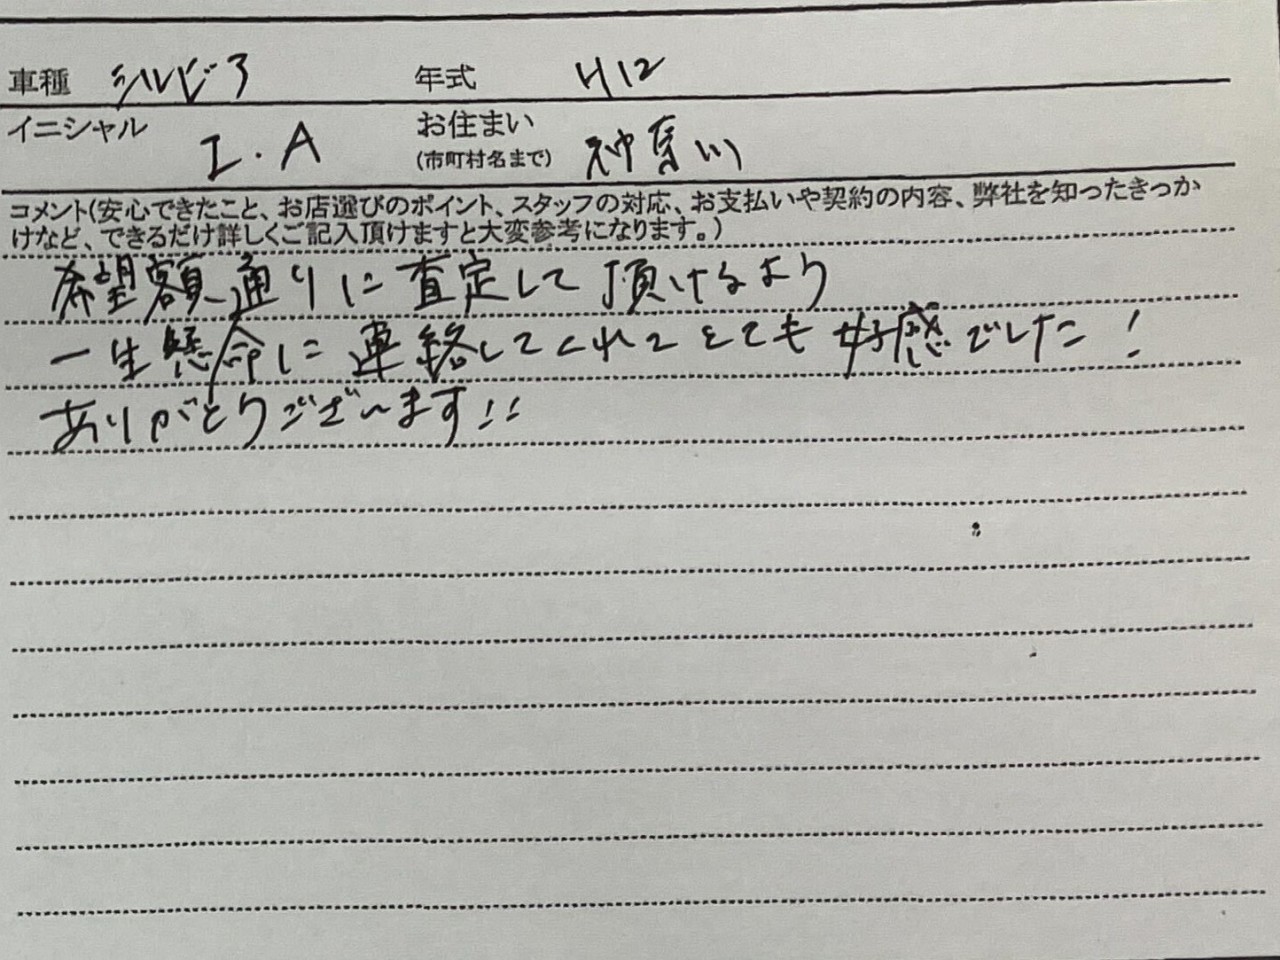 車種 シルビア 年式 H12
イニシャル I.A お住まい(市町村名まで) 神奈川
コメント(安心できたこと、お店選びのポイント、スタッフの対応、お支払いや契約の内容、弊社を知ったきっか
けなど、できるだけ詳しくご記入頂けますと大変参考になります。)
希望額通りに査定して頂けるよう
一生懸命に連絡してくれてとても好感でした!
ありがとうございます!!